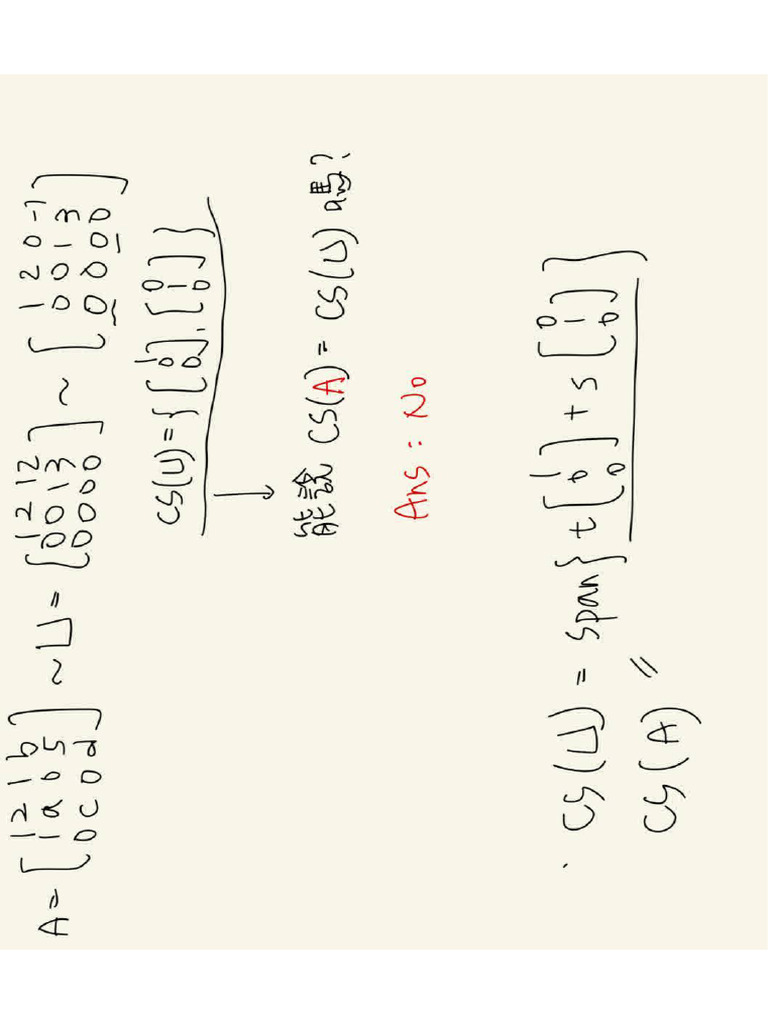 A = [1 2 1 b; 1 a b 5; 0 c 0 d] ~ U = [1 2 1 2; 0 0 1 3; 0 0 0 0] ~ [1 2 0 -1; 0 0 1 3; 0 0 0 0]
CS(U) = { [1 0 0], [0 1 0] }
→
能說 CS(A) = CS(U) 嗎?
Ans : No
· CS(U) = span { t [1 0 0] + s [0 1 0] }
CS(A) 〃